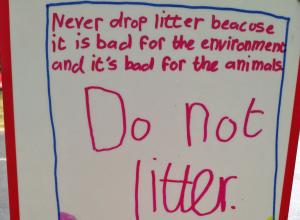 Never drop litter beacuse
it is bad for the environment
and it's bad for the animals.
Do not
litter.